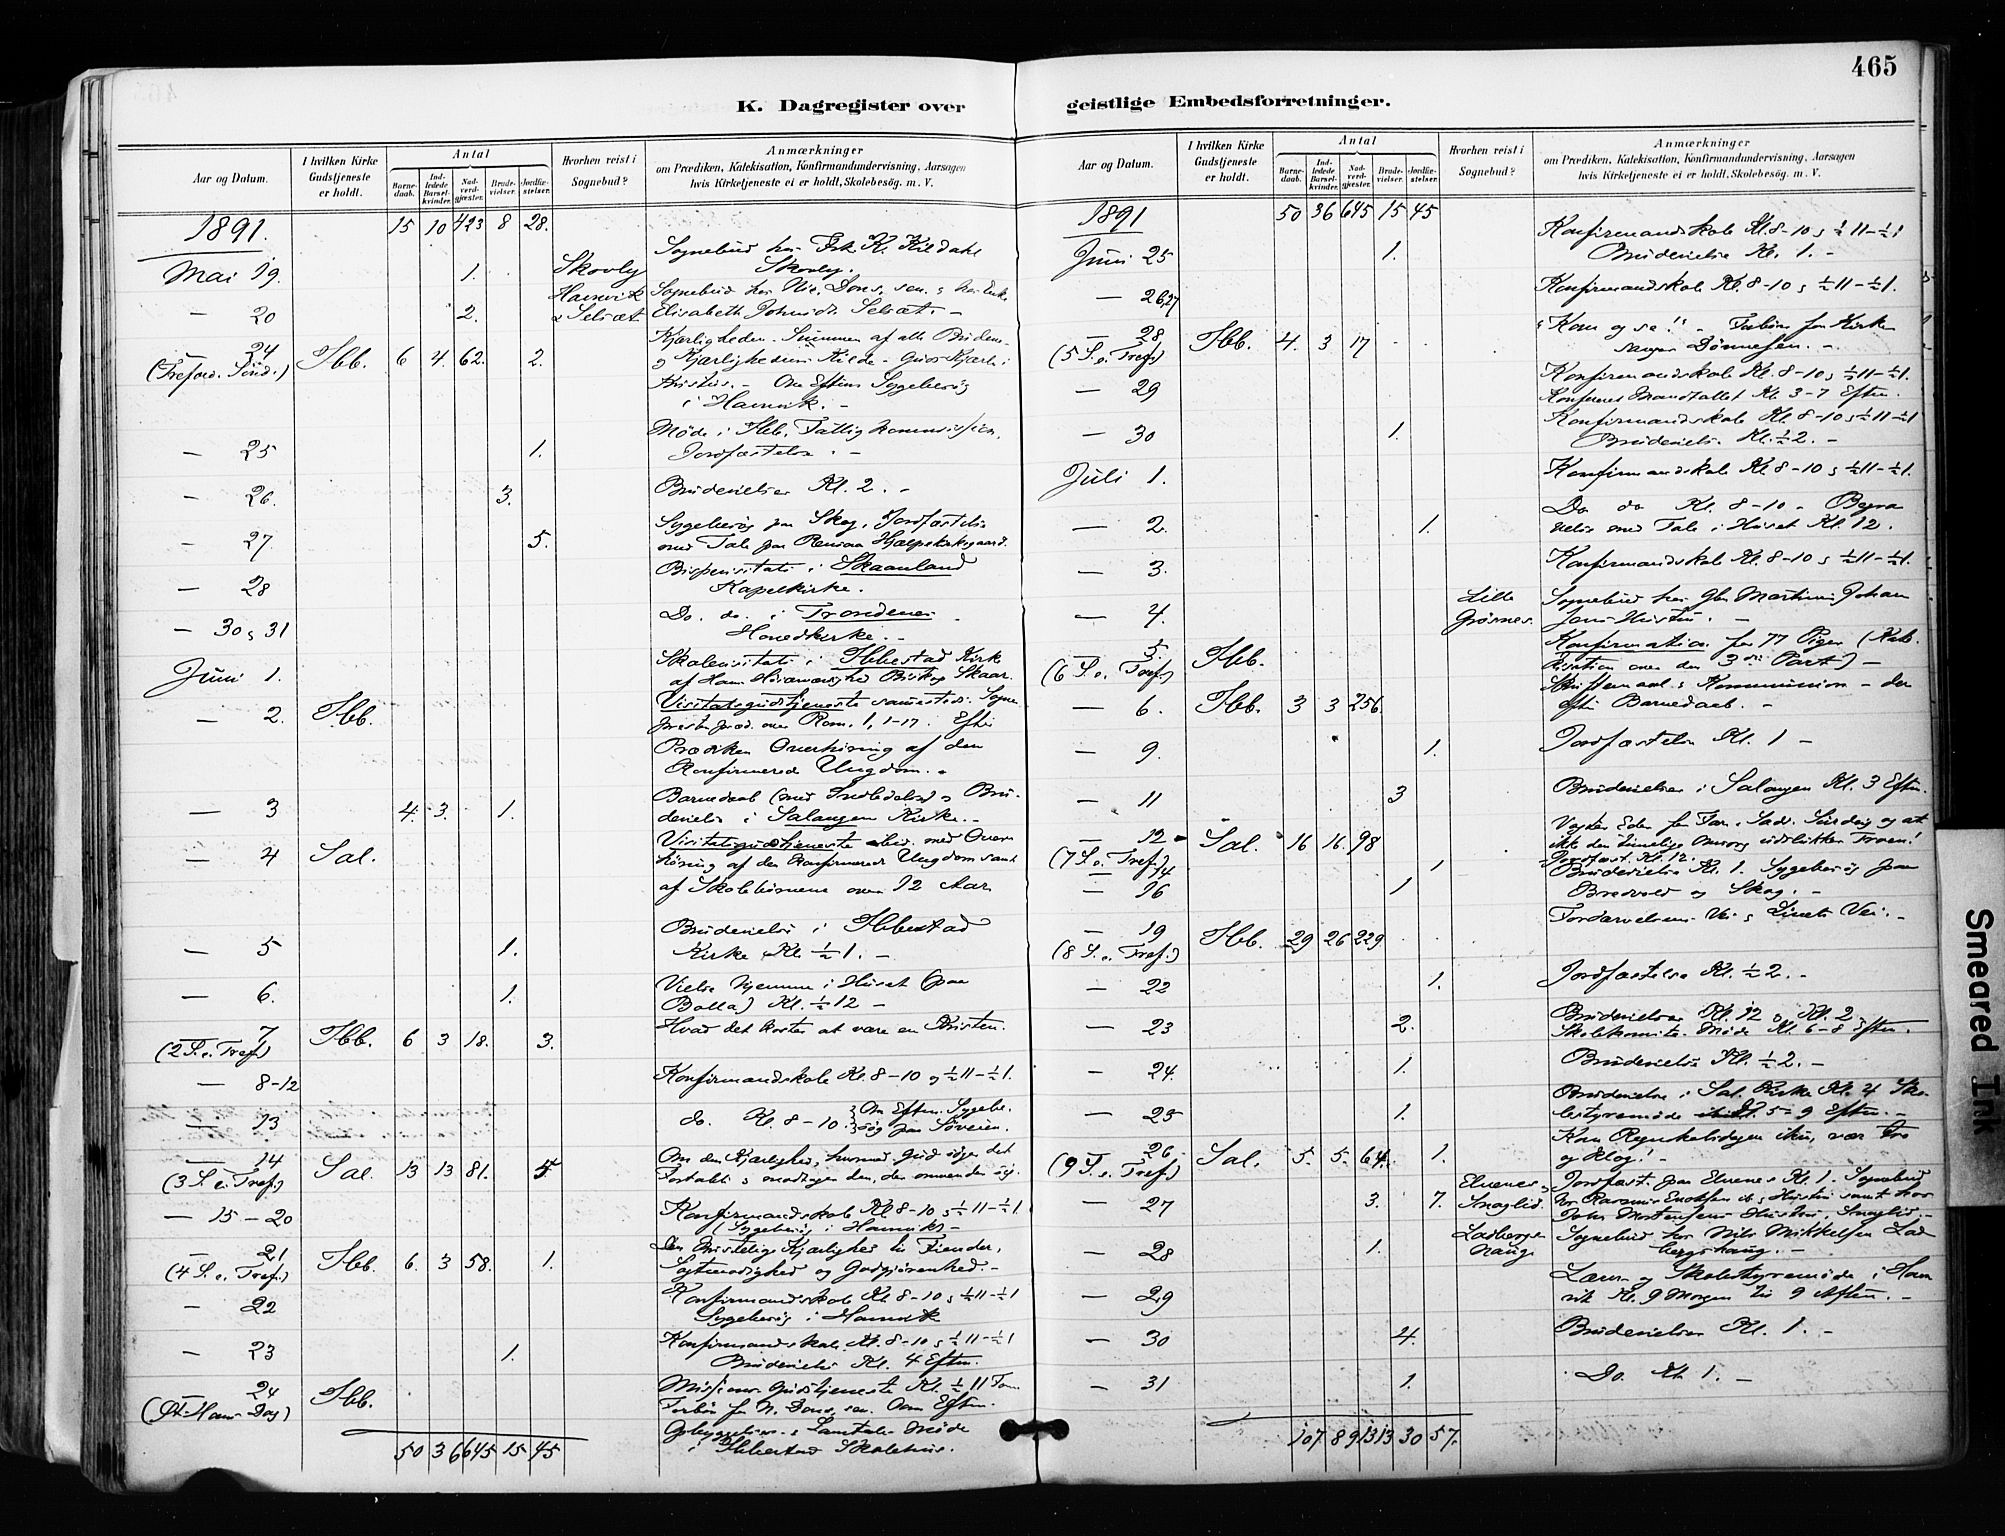 465
K. Dagregister over geistlige Embedsforretninger.
Aar og Datum.
I hvilken Kirke Gudstjeneste er holdt.
Antal
Barnedaab.
Indledede Barselkvinder.
Nadverdgjæster.
Brudevielser.
Jordfæstelser.
Hvorhen reist i Sognebud?
Anmærkninger
om Prædiken, Katekisation, Konfirmandundervisning, Aarsagen
hvis Kirketjeneste ei er holdt, Skolebesøg. m. V.
1891. 15 10 423 8 28.
Mai 19. 1. Skovly Sognebud hos Frk. Kildahl
Skovly.
— 20 2. Hamvik & Selsæt Sognebud hos Nic. Dons, sen. & hos Enke
Elisabeth Selsæt. —
— 24 (Trefold. Sønd.) Ibb. 6 4. 62. 2. Kjærligheden Summen af alle Budene
& Kjærlighedens Kilde - Guds Kjærl. i
Kristus. — Om Eftm. Sygebesøg
i Hamvik. —
— 25 1. Møde i Ibb. Fattigkommission.
Jordfæstelse. —
— 26. 3. Brudevielser Kl. 2. —
— 27 5. Sygebesøg paa Skog, Jordfæstelse
med Tale paa Hjælpekirkegaard.
— 28 Bispevisitats i Skaanland
Kapelkirke.
— 30 & 31 Do. do. i Trondenes
Hovedkirke. —
Juni 1. Skolevisitats i Ibbestad Kirke
af Hans Høiærværdighed Biskop Skaar.
— 2. Ibb. Visitatsgudstjeneste sammesteds. Sogne
prestens præd. over Rom. 1, 1-17. Efter
Prædiken Overhøring af den
Konfirmerede Ungdom. —
— 3 4. 3. 1. Barnedaab (med Indledelse) & Bru-
devielse i Salangen Kirke. —
— 4 Sal. Visitatsgudstjeneste med Over
høring af den Konfirmerede Ungdom samt
af Skolebørnene over 12 Aar
— 5 1. Brudevielse i Ibbestad
Kirke Kl ½ 1. —
— 6. 1. Vielse hjemme i Huset (paa
Bolla) Kl. ½ 12 —
— 7 (2 S. e. Tref.) Ibb. 6 3 18. 3. Hvad det koster at være en Kristen.
— 8-12 Konfirmandskole Kl. 8-10 & ½ 11 - ½ 1.
— 13 do. Kl. 8-10. Om Eftm. Sygebe-
søg paa Søveien.
— 14 (3 S. e. Tref.) Sal. 13 13 81. 5. Om den Kjærlighed, hvormed Gud søger det
Fortabte & modtager den, der omvender sig.
— 15-20 Konfirmandskole Kl 8-10 & ½ 11 - ½ 1
(Sygebesøg i Hamvik) —
— 21 (4 S. e. Tref.) Ibb. 6. 3 58. 1. Den kristelige Kjærlighed til Fiender,
Sagtmodighed og Godgjørenhed. —
— 22 Konfirmandskole Kl. 8-10 & ½ 11 - ½ 1
Sygebesøg i Hamvik
— 23 1. Konfirmandskole. Kl. 8-10 & ½ 11 - ½ 1
Brudevielse Kl. 4 Eftm.
— 24 (St. Hans Dag) Ibb. Missions Gudstjeneste Kl. ½ 11 Fm.
Forbøn for N. Dons, sen. Om Eftm.
Opbyggelses- & Samtale Møde
i Ibbestad Skolehus.
50 36 645 15 45
Aar og Datum.
I hvilken Kirke Gudstjeneste er holdt.
Antal
Barnedaab.
Indledede Barselkvinder.
Nadverdgjæster.
Brudevielser.
Jordfæstelser.
Hvorhen reist i Sognebud?
Anmærkninger
om Prædiken, Katekisation, Konfirmandundervisning, Aarsagen
hvis Kirketjeneste ei er holdt, Skolebesøg. m. V.
1891 50 36 645 15 45
Juni 25 1. Konfirmandskole Kl. 8-10 & ½ 11 - ½ 1
Brudevielse Kl. 1. —
— 26,27 Konfirmandskole Kl. 8-10 & ½ 11 - ½ 1.
— 28 (5 S. e. Tref.) Ibb. 4. 3 17 "Kom og se!" — Forbøn for Kirke
sanger Dønnesen. —
— 29 Konfirmandskole Kl. 8-10 & ½ 11 - ½ 1.
Mandtallet Kl. 3-7 Eftm.
— 30 1. Konfirmandskole Kl. 8-10 & ½ 11 - ½ 1
Brudevielse Kl. ½ 2. —
Juli 1. Konfirmandskole Kl. 8-10 & ½ 11 - ½ 1.
— 2. 1. Do do Kl. 8-10 - Begra
velse med Tale i Huset Kl. 12.
— 3. Konfirmandskole Kl. 8-10 & ½ 11 - ½ 1.
— 4. Lille Grøsnes. Sognebud hos Martinus Johan
Hustru. —
— 5. (6 S. e. Tref) Ibb. Konfirmation for 77 Piger (Kate
kisation over den 3die Part) —
— 6. Ibb. 3 3 256. Skriftemaal & Kommunion - der
efter Barnedaab. —
— 9. 1. Jordfæstelse Kl. 1 —
— 11 3 Brudevielser i Salangen Kl. 3 Eftm.
— 12 (7 S. e. Tref.) Sal. 16 16. 98 og at
ikke den timelige Omsorg udslukker Troen!
— 14 1 Jordfæst. Kl. 12.
— 16 1 Brudevielse Kl. 1. Sygebesøg paa
Bredvold og Skog. —
— 19 (8 S. e. Tref.) Ibb. 29 26 229 Fordærvelsens Vei & Livets Vei. —
— 22 1. Jordfæstelse Kl. ½ 2. —
— 23 2. Brudevielser Kl. 12 & Kl. 2
Skolekomite Møde Kl. 6-8 Eftm.
— 24. 1. Brudevielse Kl. ½ 2. —
— 25 1. Brudevielse i Sal. Kirke Kl. 4 Sko
lestyremøde Kl. 5-9 Eftm. —
— 26 (9 S. e. Tref.) Sal. 5. 5. 64. 1. vær tro
og klog! —
— 27 3. 7. Elvenes & Snaglid. Jordfæst. paa Elvenes Kl. 1. Sognebud
hos Rasmus Enoksen & Hustru samt hos
John Mortensens Hustru, Snaglid. —
— 28 1. Ladbergshaug Sognebud hos Nils Mikkelsen Lad
bergshaug. —
— 29 Lærer og Skolestyremøde i Ham
vik Kl. 9 Morgen til 9 Aften. —
— 30 4. Brudevielser Kl. 1. —
— 31 1. Do. Kl. 1. —
107 89 1313 30 57.
Smeared Ink